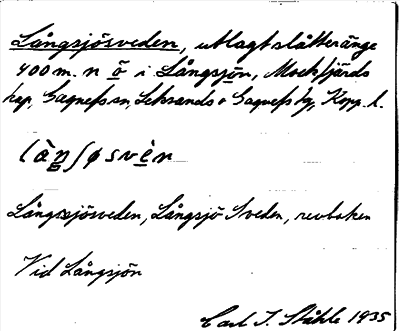 Långsjösveden, utlagt slåtteränge
400 m. n ö i Långsjön, Mockfjärds
kap. Gagnefs sn, Leksands o Gagnefs tg, Kopp. l.
Långsjösveden, Långsjö Sveden, revboken
Vid Långsjön
Carl I. Ståhle 1935